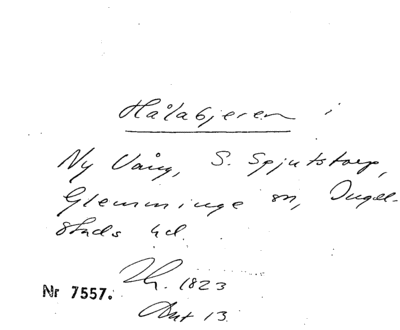 Hålabjeren i
Ny Vång, S. Spjutstorp,
Glemminge sn, Ingel-
stads hd.
1823
Nr 7557.
Ant 13